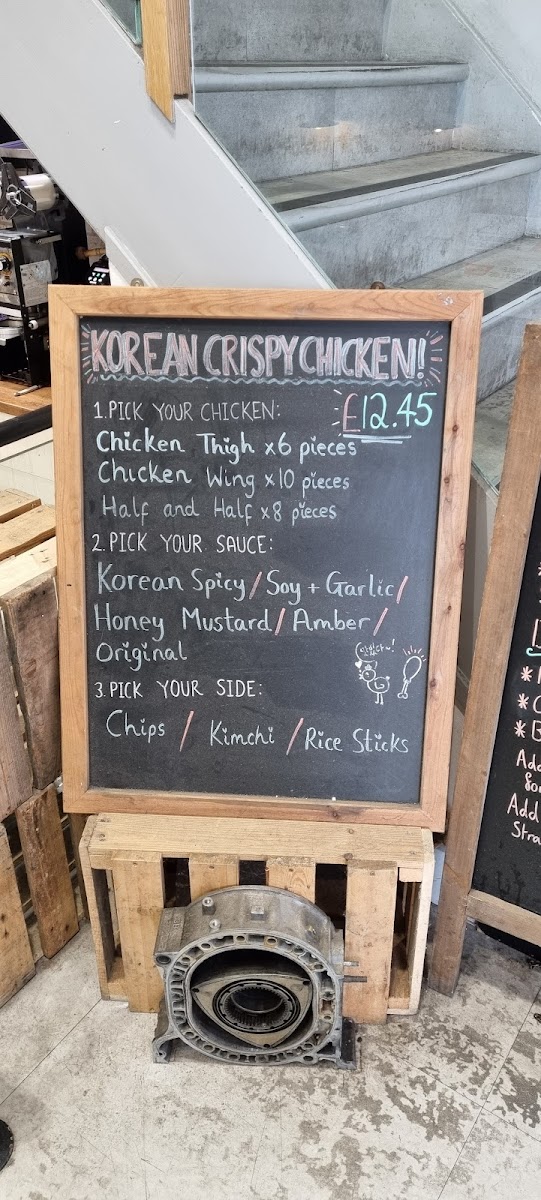 KOREAN CRISPY CHICKEN!
1.PICK YOUR CHICKEN:
£12.45
Chicken Thigh x6 pieces
Chicken Wing x10 pieces
Half and Half x8 pieces
2.PICK YOUR SAUCE:
Korean Spicy/Soy + Garlic/
Honey Mustard/Amber/
Original
3.PICK YOUR SIDE:
Chips / Kimchi /Rice Sticks